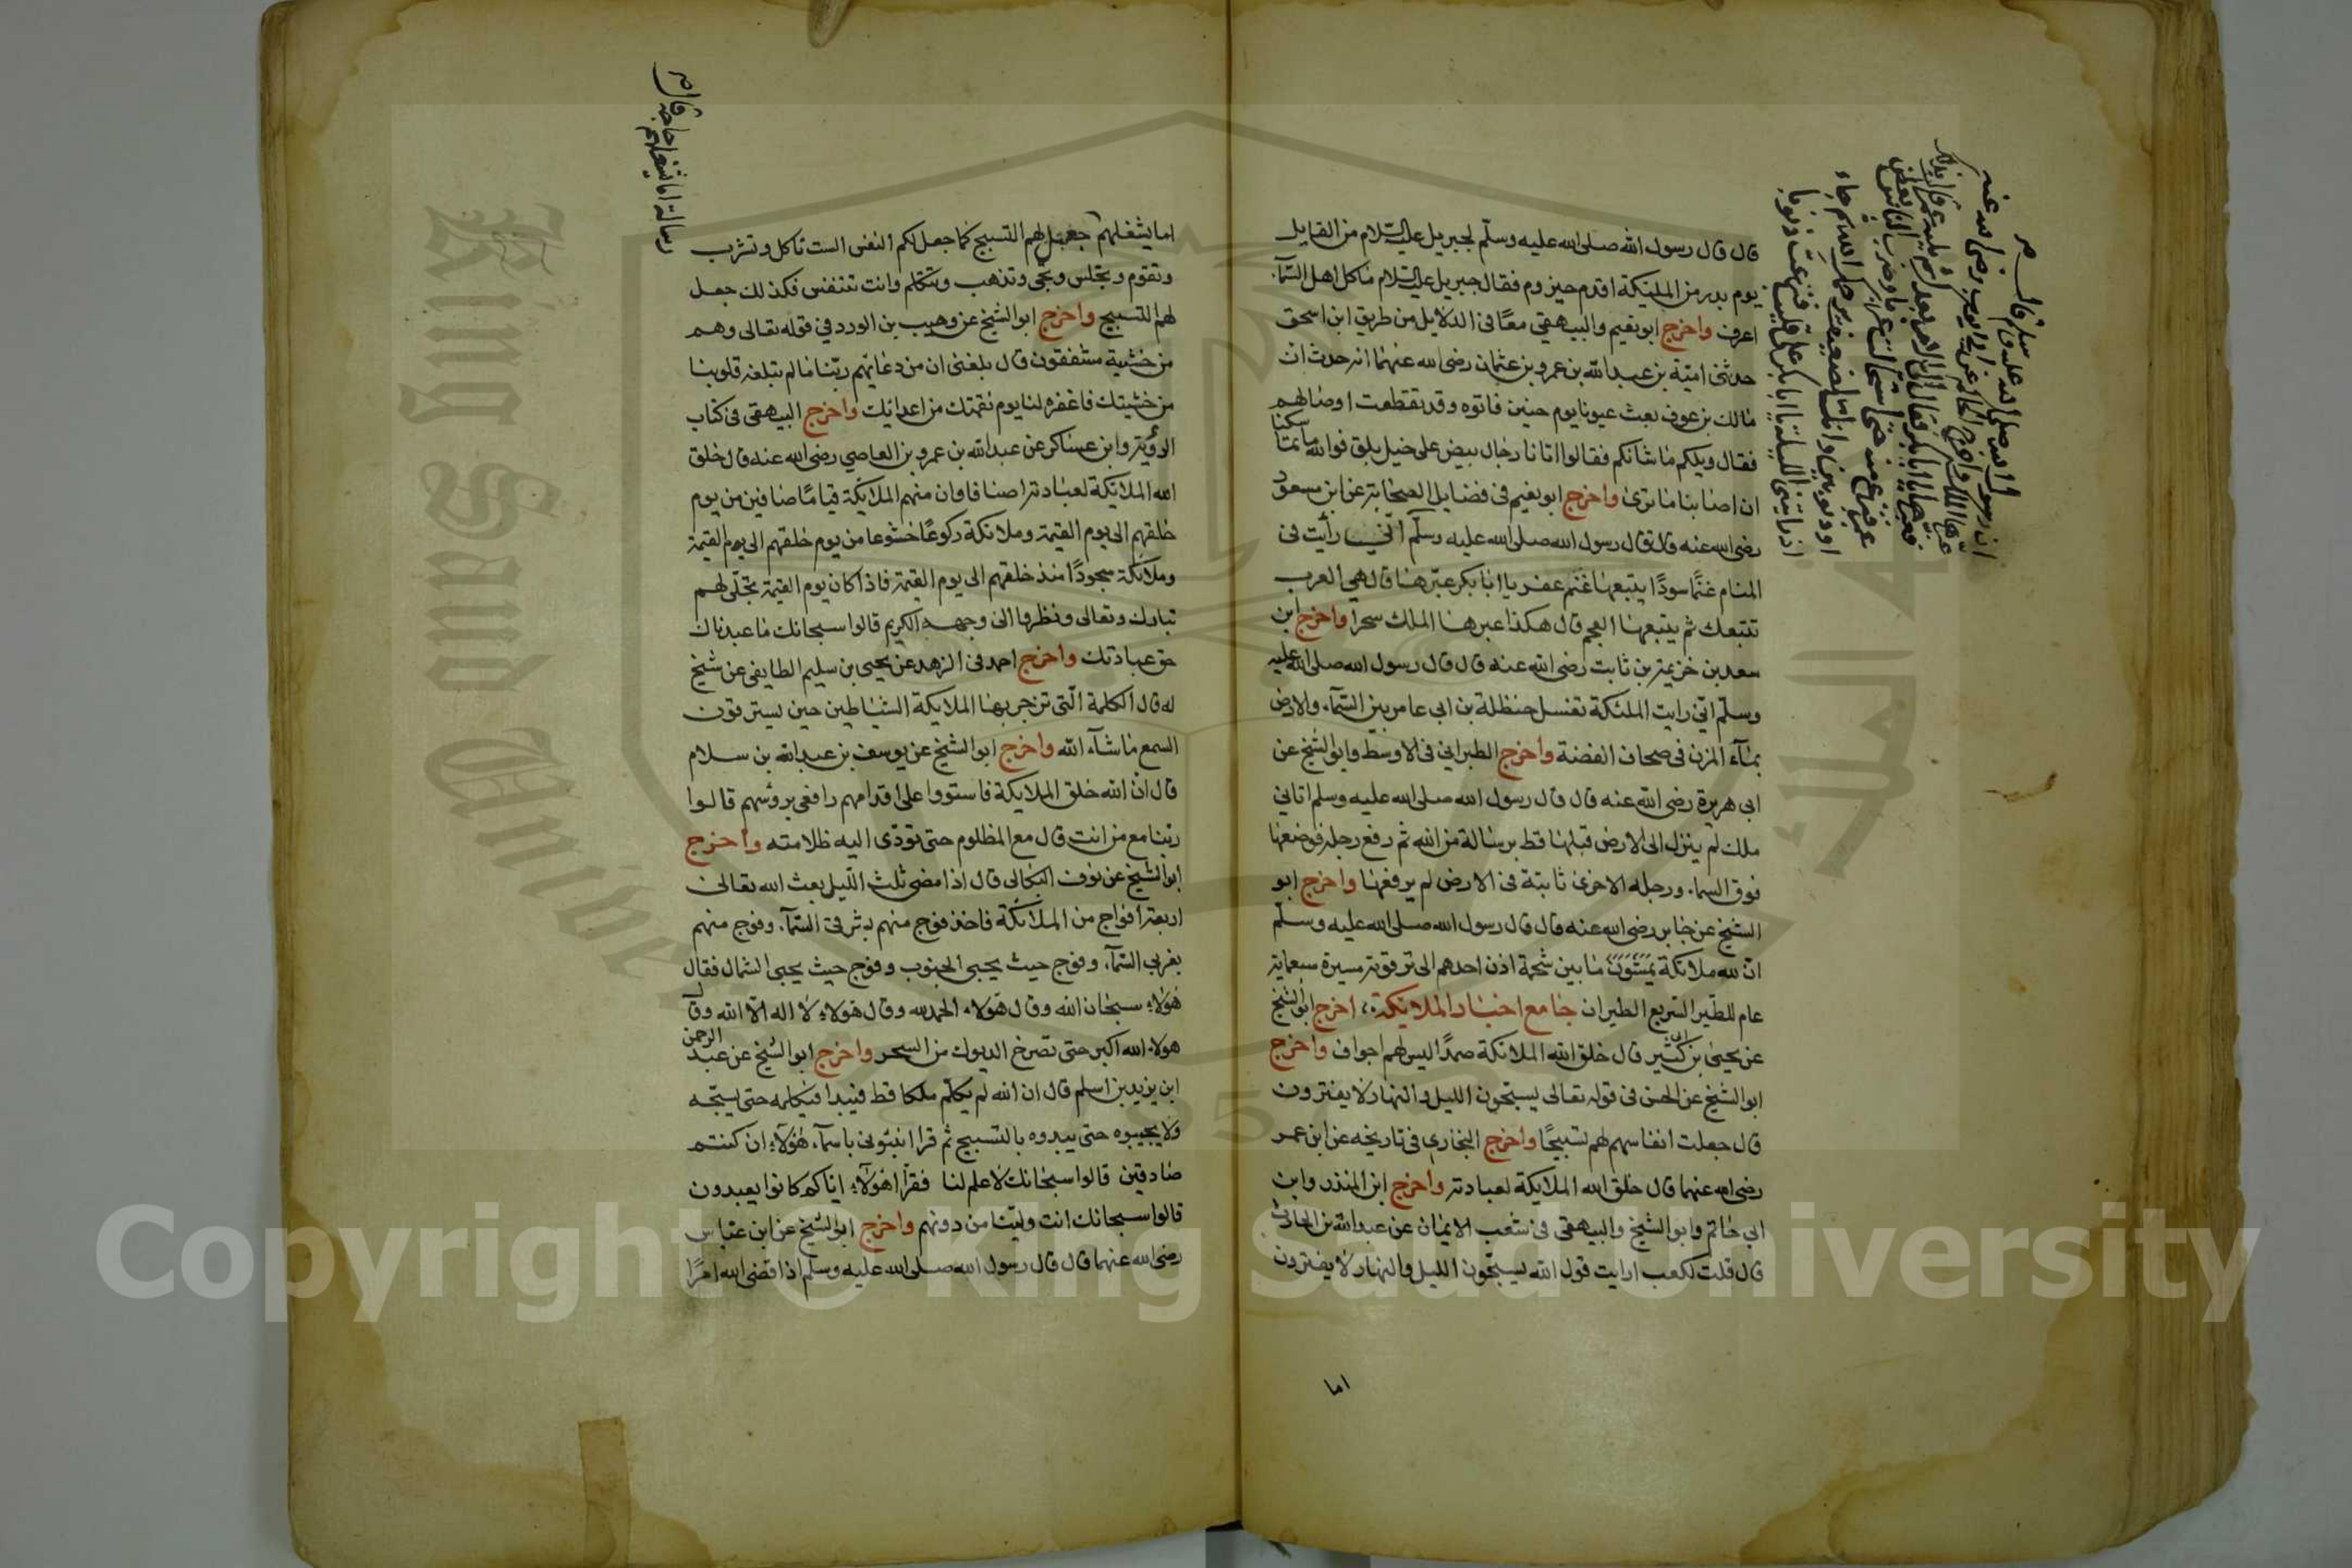 قال قال رسول الله صلى الله عليه وسلم لجبريل عليه السلام من القايل
يوم بدر من المليكة اقدم حيزوم فقال جبريل عليه السلام ما كل اهل السمآء
اعرف واخرج ابو نعيم والبيهقي معًا في الدلايل من طريق ابن اسحق
حدثني امية بن عبد الله بن عمرو بن عثمان رضى الله عنهما انه حدث ان
مالك بن عوف بعث عيونا يوم حنين فاتوه وقد تقطعت اوصالهم
فقال ويلكم ما شانكم فقالوا اتانا رجال بيض على خيل بلق فوالله ما تماسكنا
ان اصابنا ما ترى واخرج ابو نعيم في فضايل الصحابة عن ابن مسعود
رضى الله عنه قال قال رسول الله صلى الله عليه وسلم انى رأيت في
المنام غنمًا سودًا يتبعها غنم عفر يا ابا بكر عبّرها قال هي العرب
تتبعك ثم يتبعها العجم قال هكذا عبرها الملك سحرا واخرج ابن
سعد بن خزيمة بن ثابت رضى الله عنه قال قال رسول الله صلى الله عليه
وسلم انى رايت الملئكة تغسل حنظلة بن ابى عامر بين السمآء والارض
بمآء المزن في صحاف الفضة واخرج الطبراني في الاوسط وابو الشيخ عن
ابى هريرة رضى الله عنه قال قال رسول الله صلى الله عليه وسلم اتانى
ملك لم ينزل الى الارض قبلها قط برسالة من الله ثم رفع رجله فوضعها
فوق السماء ورجله الاخرى ثابتة في الارض لم يرفعها واخرج ابو
الشيخ عن جابر رضى الله عنه قال قال رسول الله صلى الله عليه وسلم
ان لله ملائكة ما بين شحمة اذن احدهم الى ترقوته مسيرة سبعماية
عام للطير السريع الطيران جامع اخبار الملائكة اخرج ابو الشيخ
عن يحيى بن ابى كثير قال خلق الله الملائكة صمدًا ليس لهم اجواف واخرج
ابو الشيخ عن الحسن في قوله تعالى يسبحون الليل والنهار لا يفترون
قال جعلت انفاسهم لهم تسبيحًا واخرج البخاري في تاريخه عن ابن عمر
رضى الله عنهما قال خلق الله الملايكة لعبادته واخرج ابن المنذر وابن
ابي حاتم وابو الشيخ والبيهقي في شعب الايمان عن عبد الله بن الحارث
قال قلت لكعب ارايت قول الله يسبحون الليل والنهار لا يفترون
اما
رسالة اما شغلهم حاجة قال
اما يشغلهم جعل لهم التسبيح كما جعل لكم النفس الست تاكل وتشرب
وتقوم وتجلس وتجى وتذهب وتتكلم وانت تتنفس فكذلك جعل
لهم التسبيح واخرج ابو الشيخ عن وهيب بن الورد في قوله تعالى وهم
من خشية مشفقون قال بلغنى ان من دعائهم ربنا ما لم تبلغه قلوبنا
من خشيتك فاغفره لنا يوم نقمتك من اعدائك واخرج البيهقى فى كتاب
الرؤية وابن عساكر عن عبد الله بن عمرو بن العاصي رضى الله عنه قال خلق
الله الملائكة لعبادته اصنافا وان منهم الملائكة قيامًا صافين من يوم
خلقهم الى يوم القيمة وملائكة ركوعًا خشوعا من يوم خلقهم الى يوم القيمة
وملائكة سجودًا منذ خلقهم الى يوم القيمة فاذا كان يوم القيمة تجلى لهم
تبارك وتعالى ونظروا الى وجهه الكريم قالوا سبحانك ما عبدناك
حق عبادتك واخرج احمد في الزهد عن يحيى بن سليم الطايفى عن شيخ
له قال الكلمة التى تزجر بها الملايكة الشياطين حين يسترقون
السمع ما شآء الله واخرج ابو الشيخ عن يوسف بن عبد الله بن سلام
قال ان الله خلق الملايكة فاستووا على اقدامهم رافعى رؤسهم قالوا
ربنا مع من انت قال مع المظلوم حتى تودّى اليه ظلامته واخرج
ابو الشيخ عن نوف البكالى قال اذا مضى ثلث الليل بعث الله تعالى
اربعة افواج من الملائكة فاخذ فوج منهم بشرقى السمآء وفوج منهم
بغربى السمآء وفوج حيث يجيى الجنوب وفوج حيث يجيى الشمال فقال
هؤلاء سبحان الله وقال هؤلاء الحمد لله وقال هؤلاء لا اله الا الله وقال
هولاء الله اكبر حتى تصرخ الديوك من السحر واخرج ابو الشيخ عن عبد الرحمن
ابن يزيد بن اسلم قال ان الله لم يكلم ملكا قط فيبدا فيكلمه حتى يسبحه
ولا يجيبوه حتى يبدوه بالتسبيح ثم قرا انبئونى باسمآء هؤلآء ان كنتم
صادقين قالوا سبحانك لا علم لنا فقرأ اهؤلآء اياكم كانوا يعبدون
قالوا سبحانك انت ولينا من دونهم واخرج ابو الشيخ عن ابن عباس
رضى الله عنهما قال قال رسول الله صلى الله عليه وسلم اذا قضى الله امرًا
King Saud University
Copyright © King Saud University